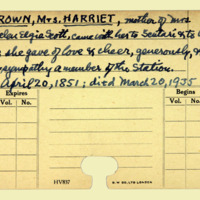 ROWN, Mrs. HARRIET, mother of Mrs
Elgie Scott, came with her to Seelari & to
she gave of love & cheer, generously, &
sympathy a member of the Station.
April 20, 1851; died March 20, 1935
Expires
Begins
Vol.
No.
Vol.
No.
Vol.
No.
HV837